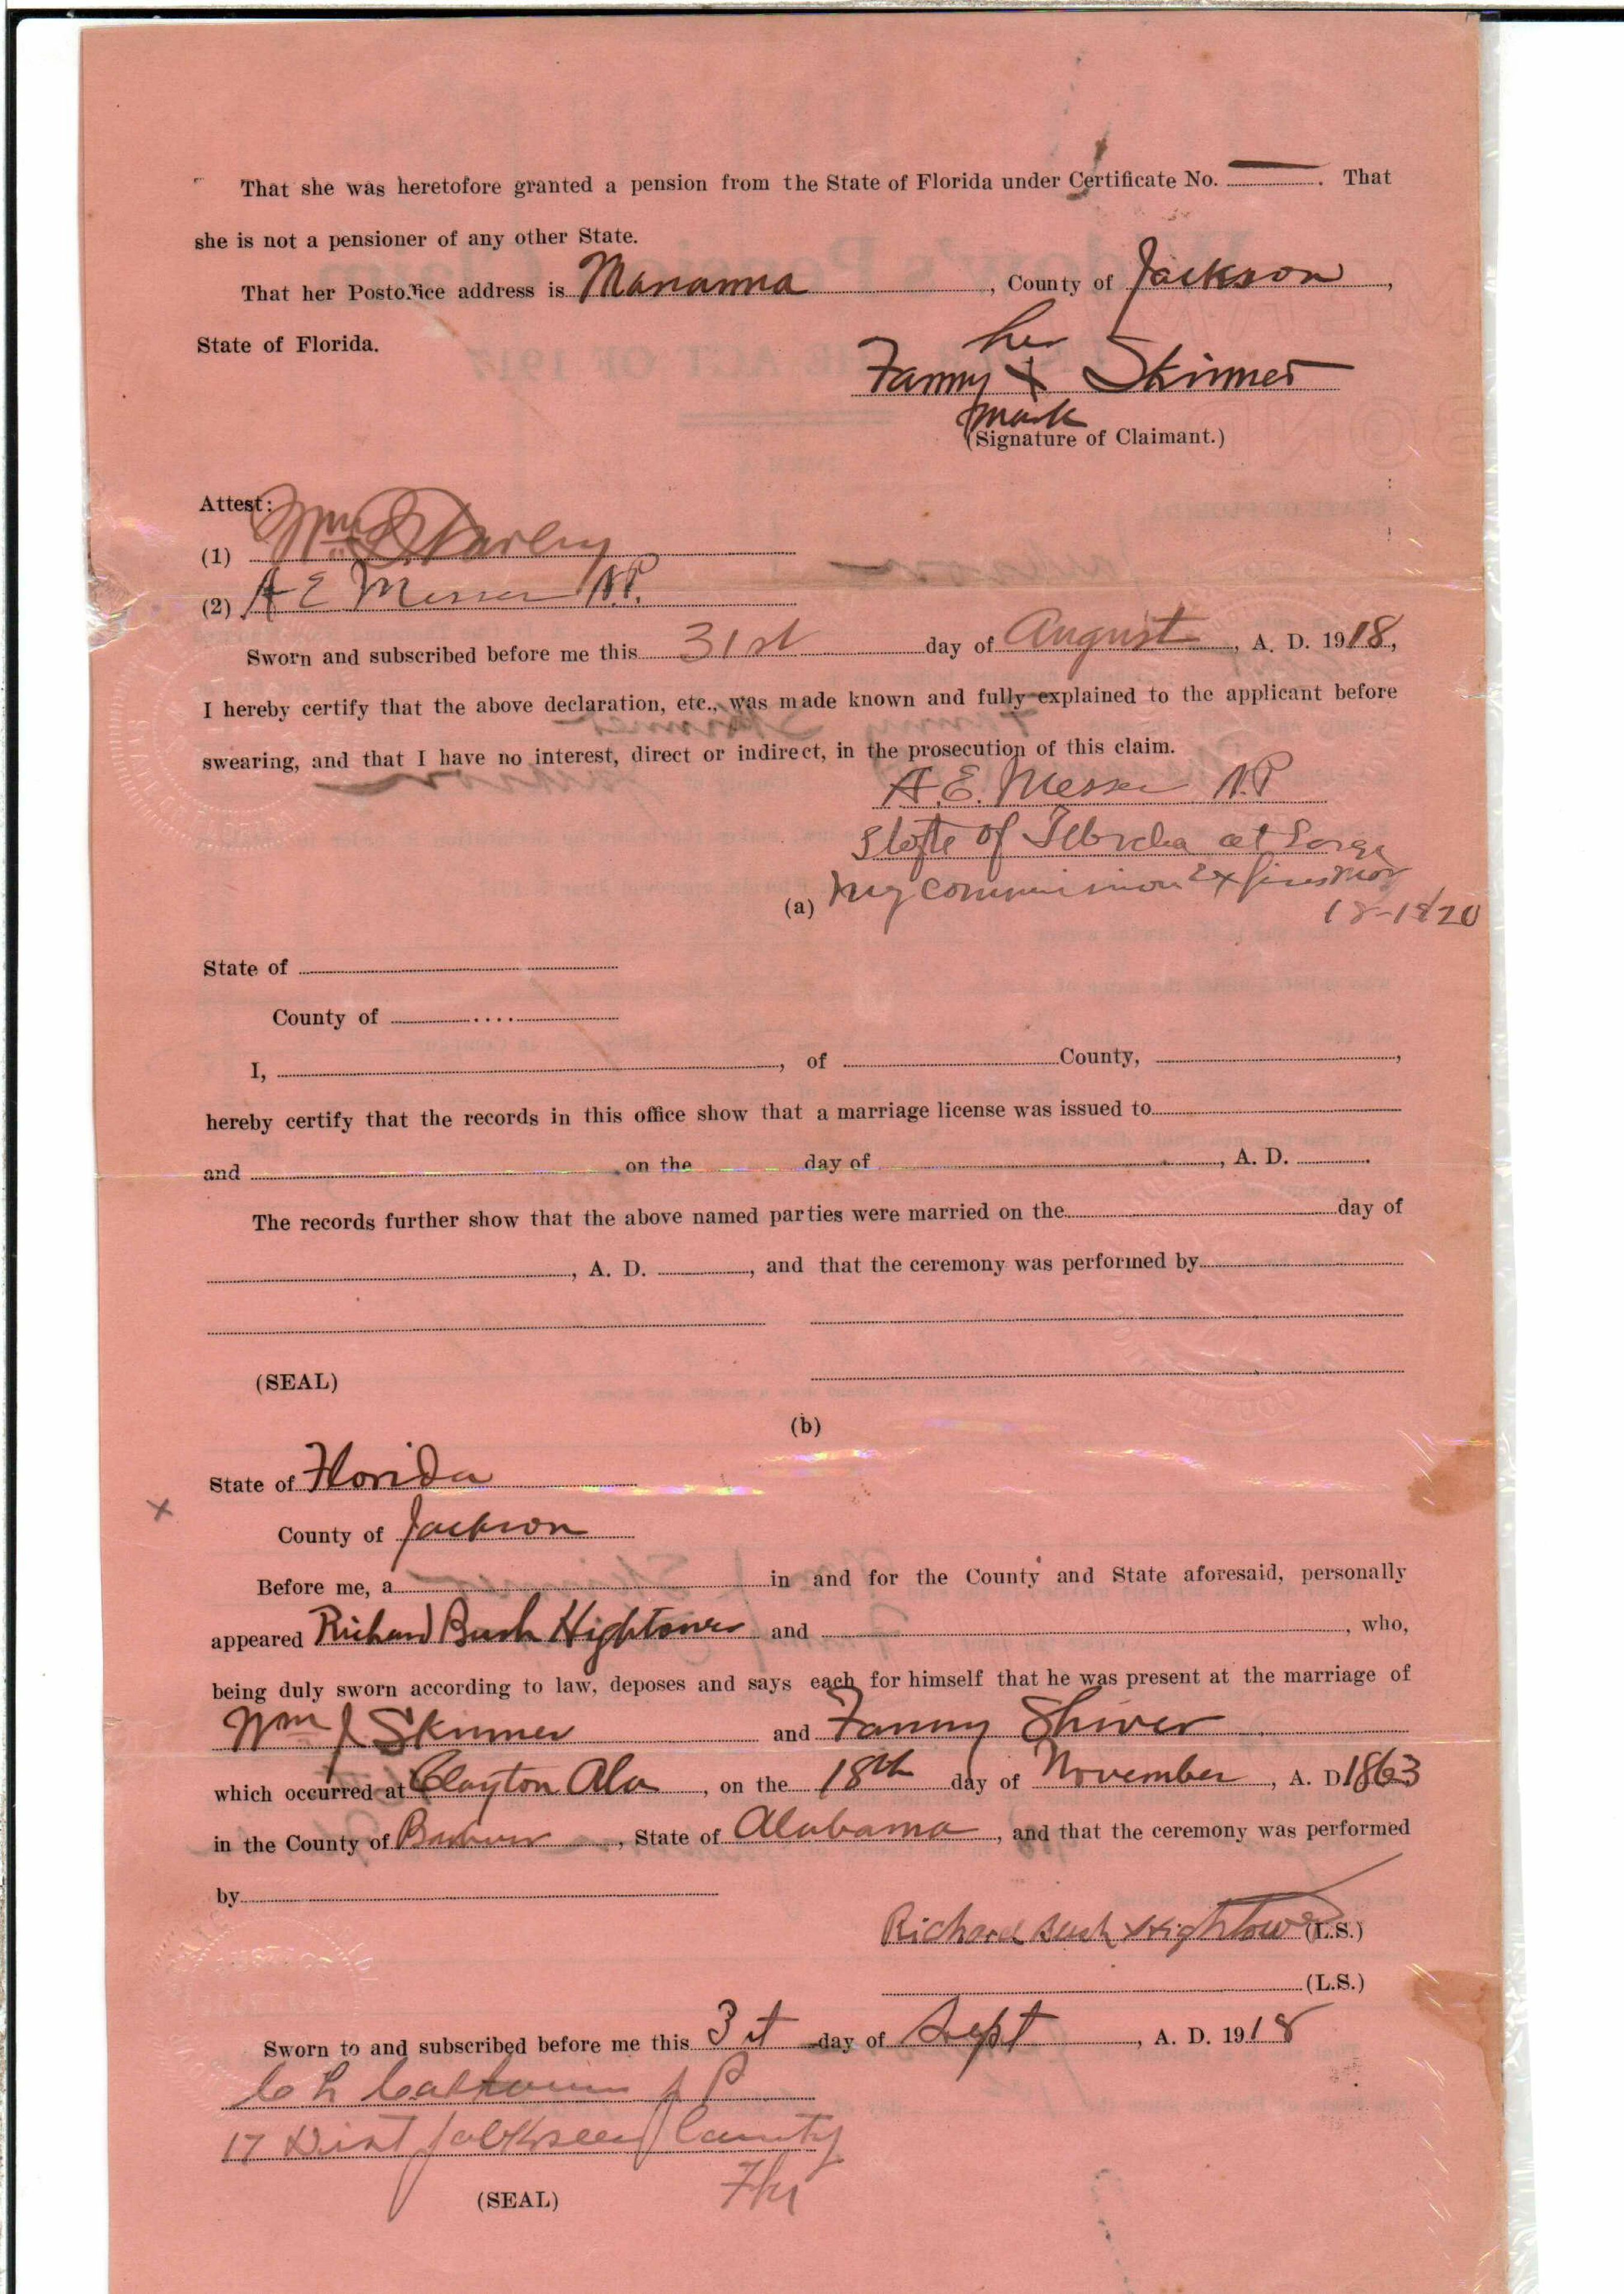 That she was heretofore granted a pension from the State of Florida under Certificate No. —. That
she is not a pensioner of any other State.
That her Postoffice address is Marianna, County of Jackson,
State of Florida.
her
Fanny X Skinner
mark
(Signature of Claimant.)
Attest:
(1) Wm
(2) A E Messer N.P.
Sworn and subscribed before me this 31st day of August, A. D. 1918,
I hereby certify that the above declaration, etc., was made known and fully explained to the applicant before
swearing, and that I have no interest, direct or indirect, in the prosecution of this claim.
A. E. Messer N.P
State of Florida at Large
(a) My commission Expires Nov
18-1920
State of
County of
I, , of County, ,
hereby certify that the records in this office show that a marriage license was issued to
and on the day of , A. D. .
The records further show that the above named parties were married on the day of
, A. D. , and that the ceremony was performed by
(SEAL)
(b)
State of Florida
X
County of Jackson
Before me, a in and for the County and State aforesaid, personally
appeared Richard Bush Hightower and , who,
being duly sworn according to law, deposes and says each for himself that he was present at the marriage of
Wm J Skinner and Fanny Shiver
which occurred at Clayton Ala, on the 18th day of November, A. D 1863
in the County of Barbour, State of Alabama, and that the ceremony was performed
by
Richard Bush Hightower (L.S.)
(L.S.)
Sworn to and subscribed before me this 3st day of Sept, A. D. 1918
C L Calhoun J P
17 Dist Jackson County
Fla
(SEAL)